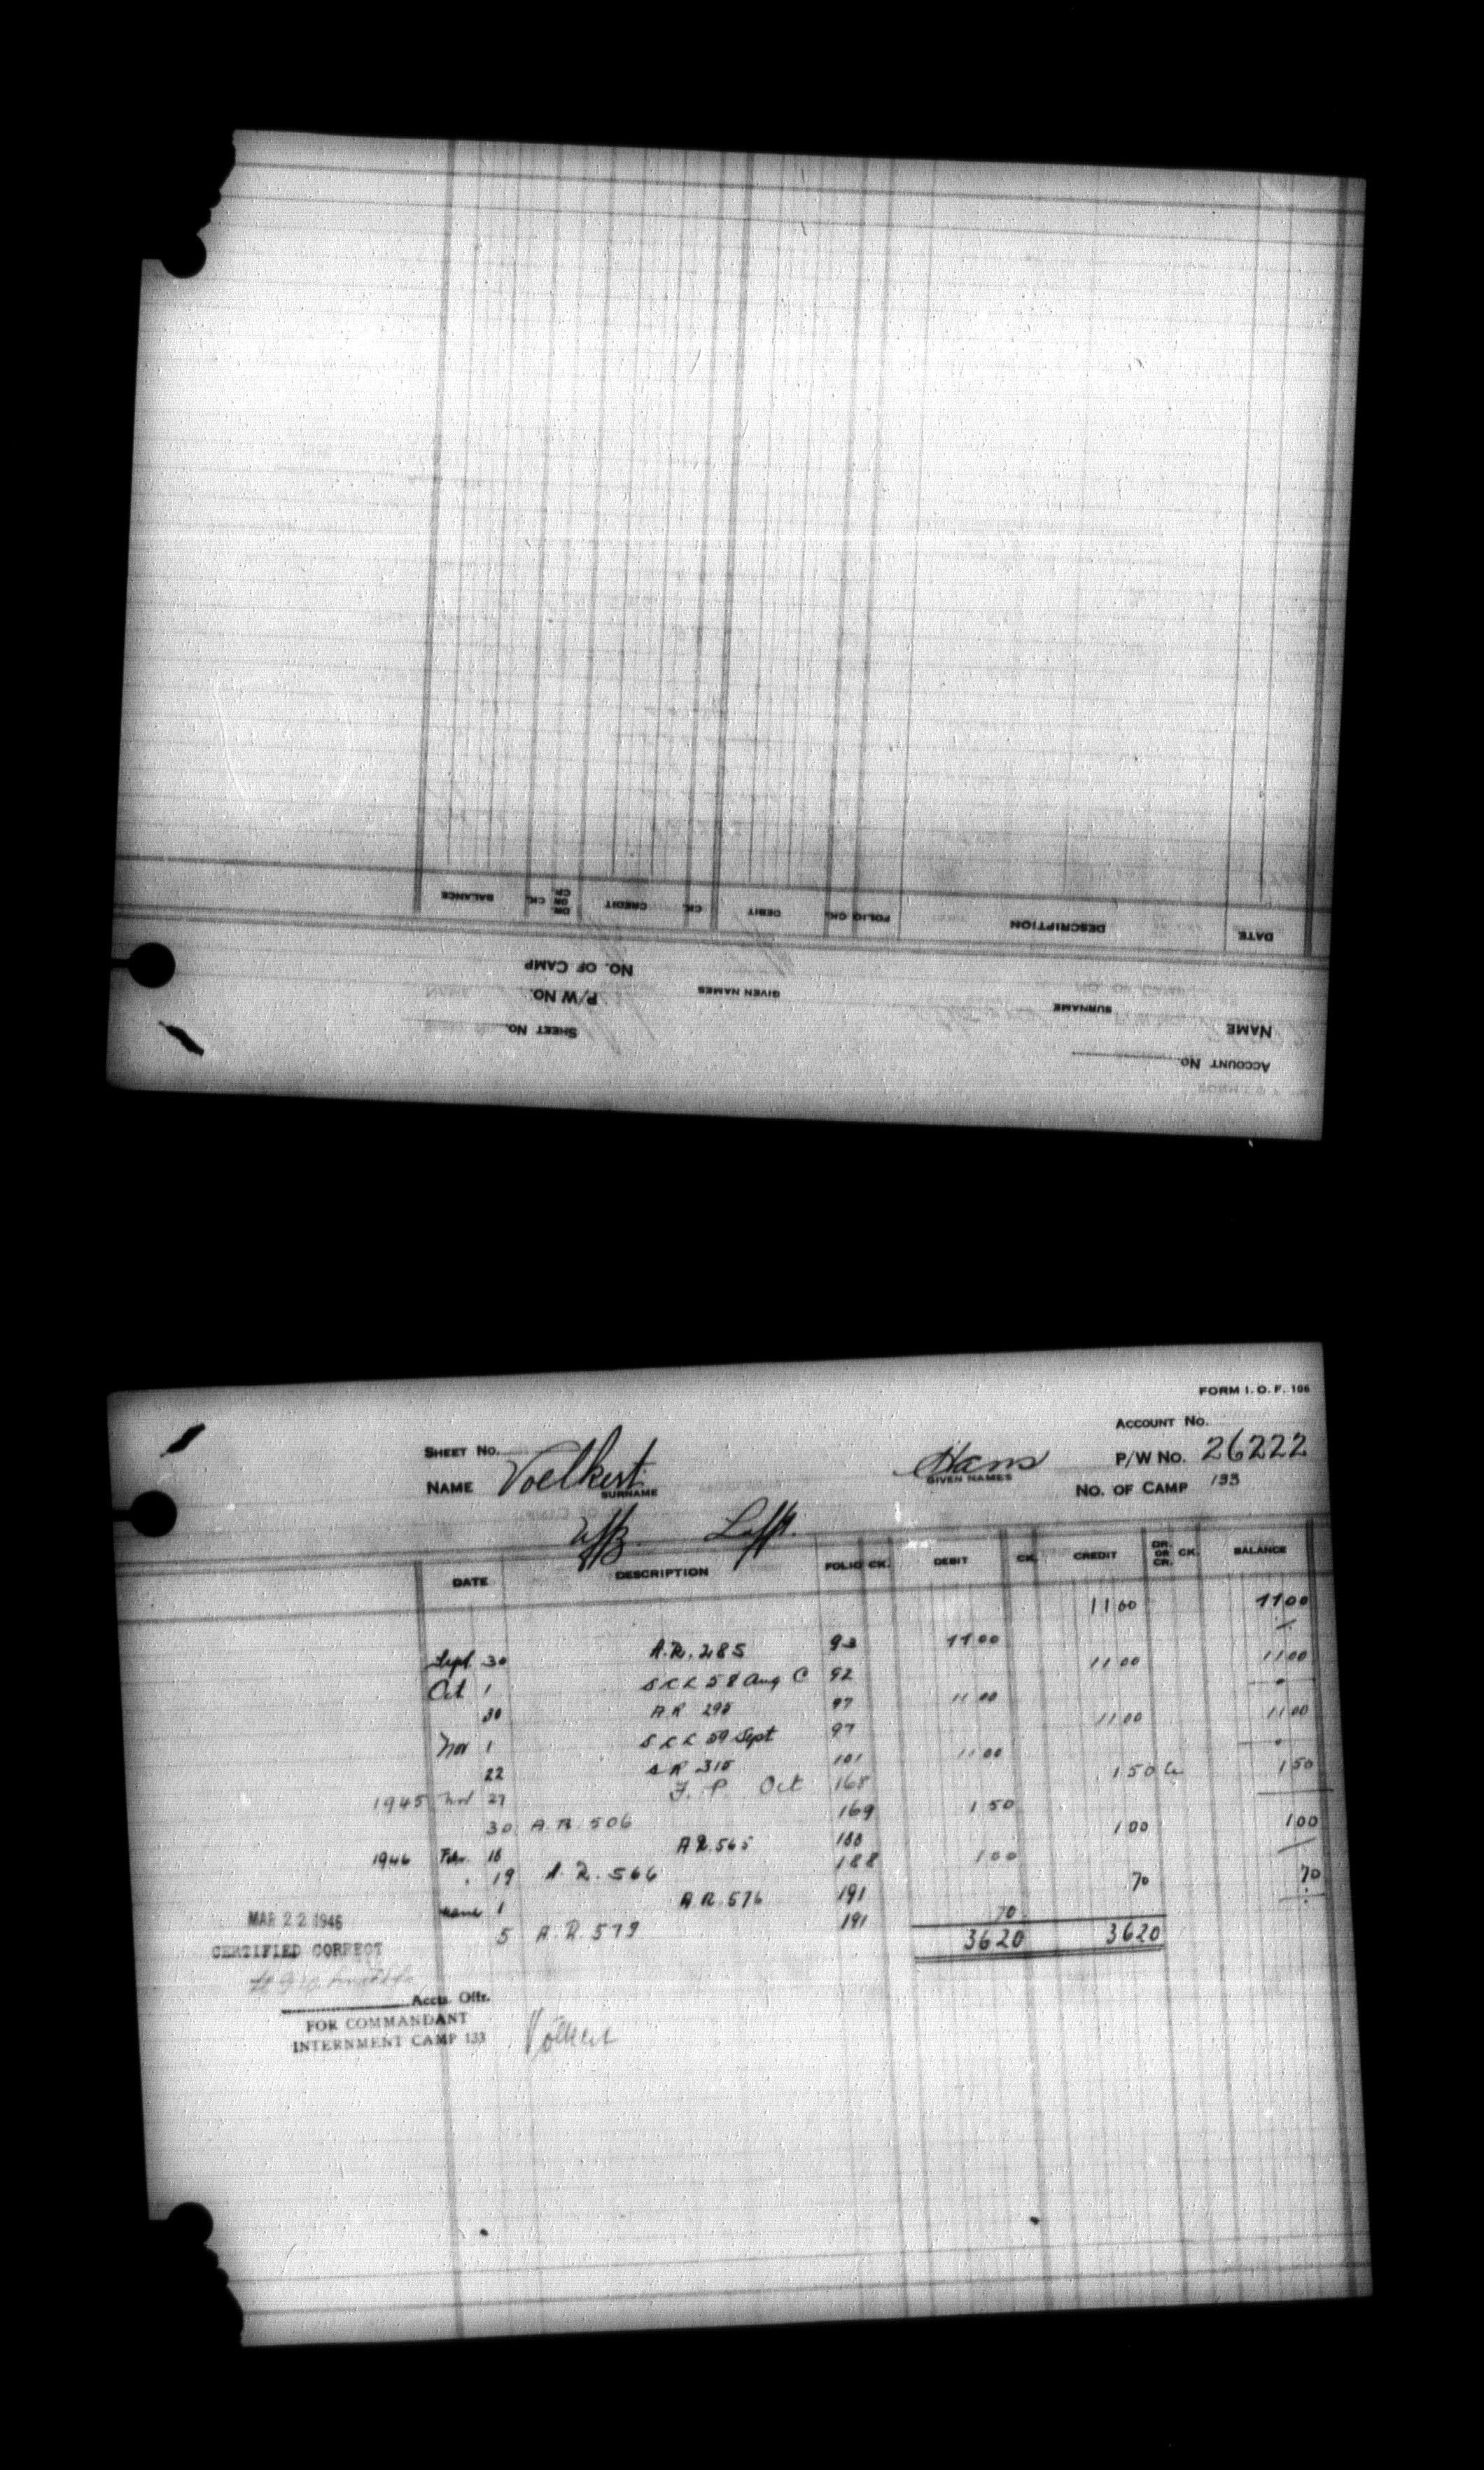 DATE DESCRIPTION FOLIO CK. DEBIT CK. CREDIT DR. OR CR. CK. BALANCE
NO. OF CAMP
NAME SURNAME GIVEN NAMES P/W NO.
SHEET NO.
ACCOUNT NO.
FORM I. O. F. 106
ACCOUNT NO.
SHEET NO. P/W NO. 26222
NAME Voelkert Hans NO. OF CAMP 133
SURNAME GIVEN NAMES
Uffz. Luft.
DATE DESCRIPTION FOLIO CK. DEBIT CK. CREDIT DR. OR CR. CK. BALANCE
11 00 11 00
Sept 30 A.R. 285 93 11 00
Oct 1 58 Aug C 92 11 00 11 00
30 A R 295 97 11 00
Nov 1 59 Sept 97 11 00 11 00
22 A R 315 101 11 00
1945 Nov 27 F. P. Oct 168 1 50 Cr 1 50
30 A. R. 506 169 1 50
1946 Feb. 18 A R. 565 188 1 00 1 00
19 A. R. 566 188 1 00
1 A R. 576 191 70 70
5 A. R. 579 191 70
36 20 36 20
MAR 22 1946
CERTIFIED CORRECT
Accts. Offr.
FOR COMMANDANT
INTERNMENT CAMP 133
Völkert